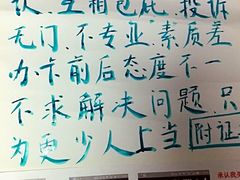 认、互相包庇、投诉
无门、不专业、素质差
办卡前后态度不一
不求解决问题、只
为更少人上当 附证